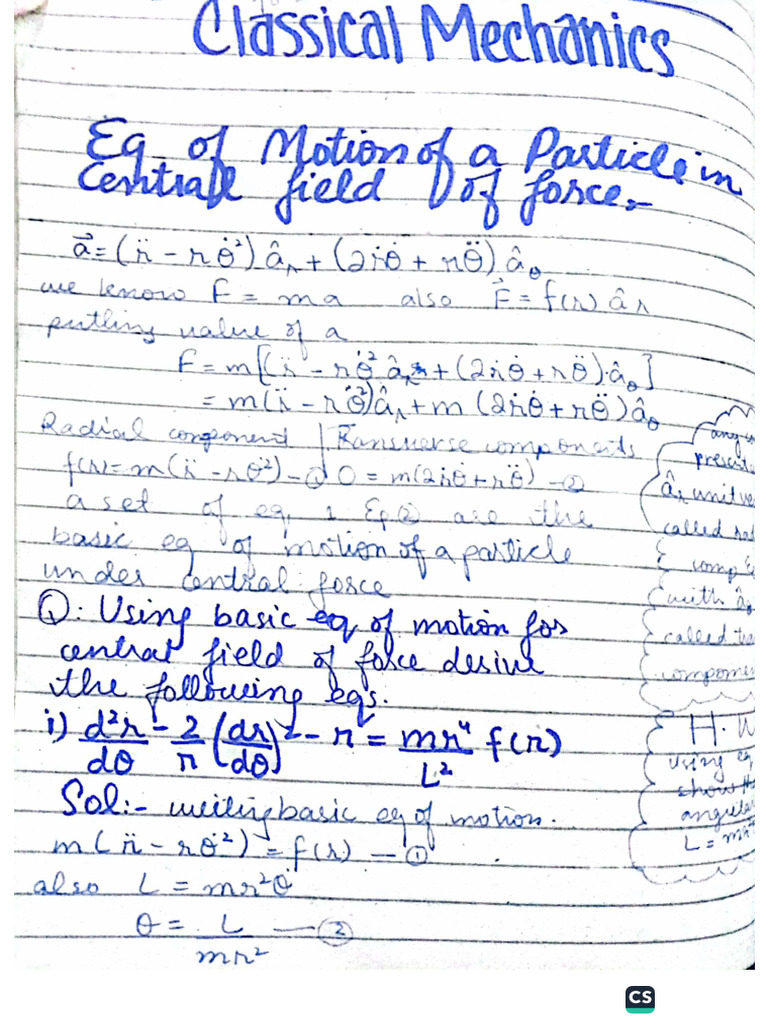 Classical Mechanics
Eq of Motion of a Particle in
Central field of force.
a⃗ = (r̈ - rθ̇²) âᵣ + (2ṙθ̇ + rθ̈) â_θ
we know F = ma also F⃗ = f(r) âr
putting value of a
F = m[(r̈ - rθ̇² âᵣ + (2ṙθ̇ + rθ̈)·â_θ]
= m(r̈ - rθ̇²)âᵣ + m (2ṙθ̇ + rθ̈) â_θ
Radial component | Transverse components
f(r) = m(r̈ - rθ̇²) - ① 0 = m(2ṙθ̇ + rθ̈) - ②
a set of eq, 1 Eq ② are the
basic eq of motion of a particle
under central force
Q: Using basic eq of motion for
central field of force derive
the following eqs.
i) d²r/dθ - 2/r (dr/dθ)² - r = mr⁴/L² f(r)
Sol:- writing basic eq of motion.
m(r̈ - rθ̇²) = f(r) — ①
also L = mr²θ̇
θ = L/mr² — ②
any
present
âr unit ve
called ra
& comp
with â_θ
called tra
componen
H.W
Using eq
show th
angular
L = mr²
CS